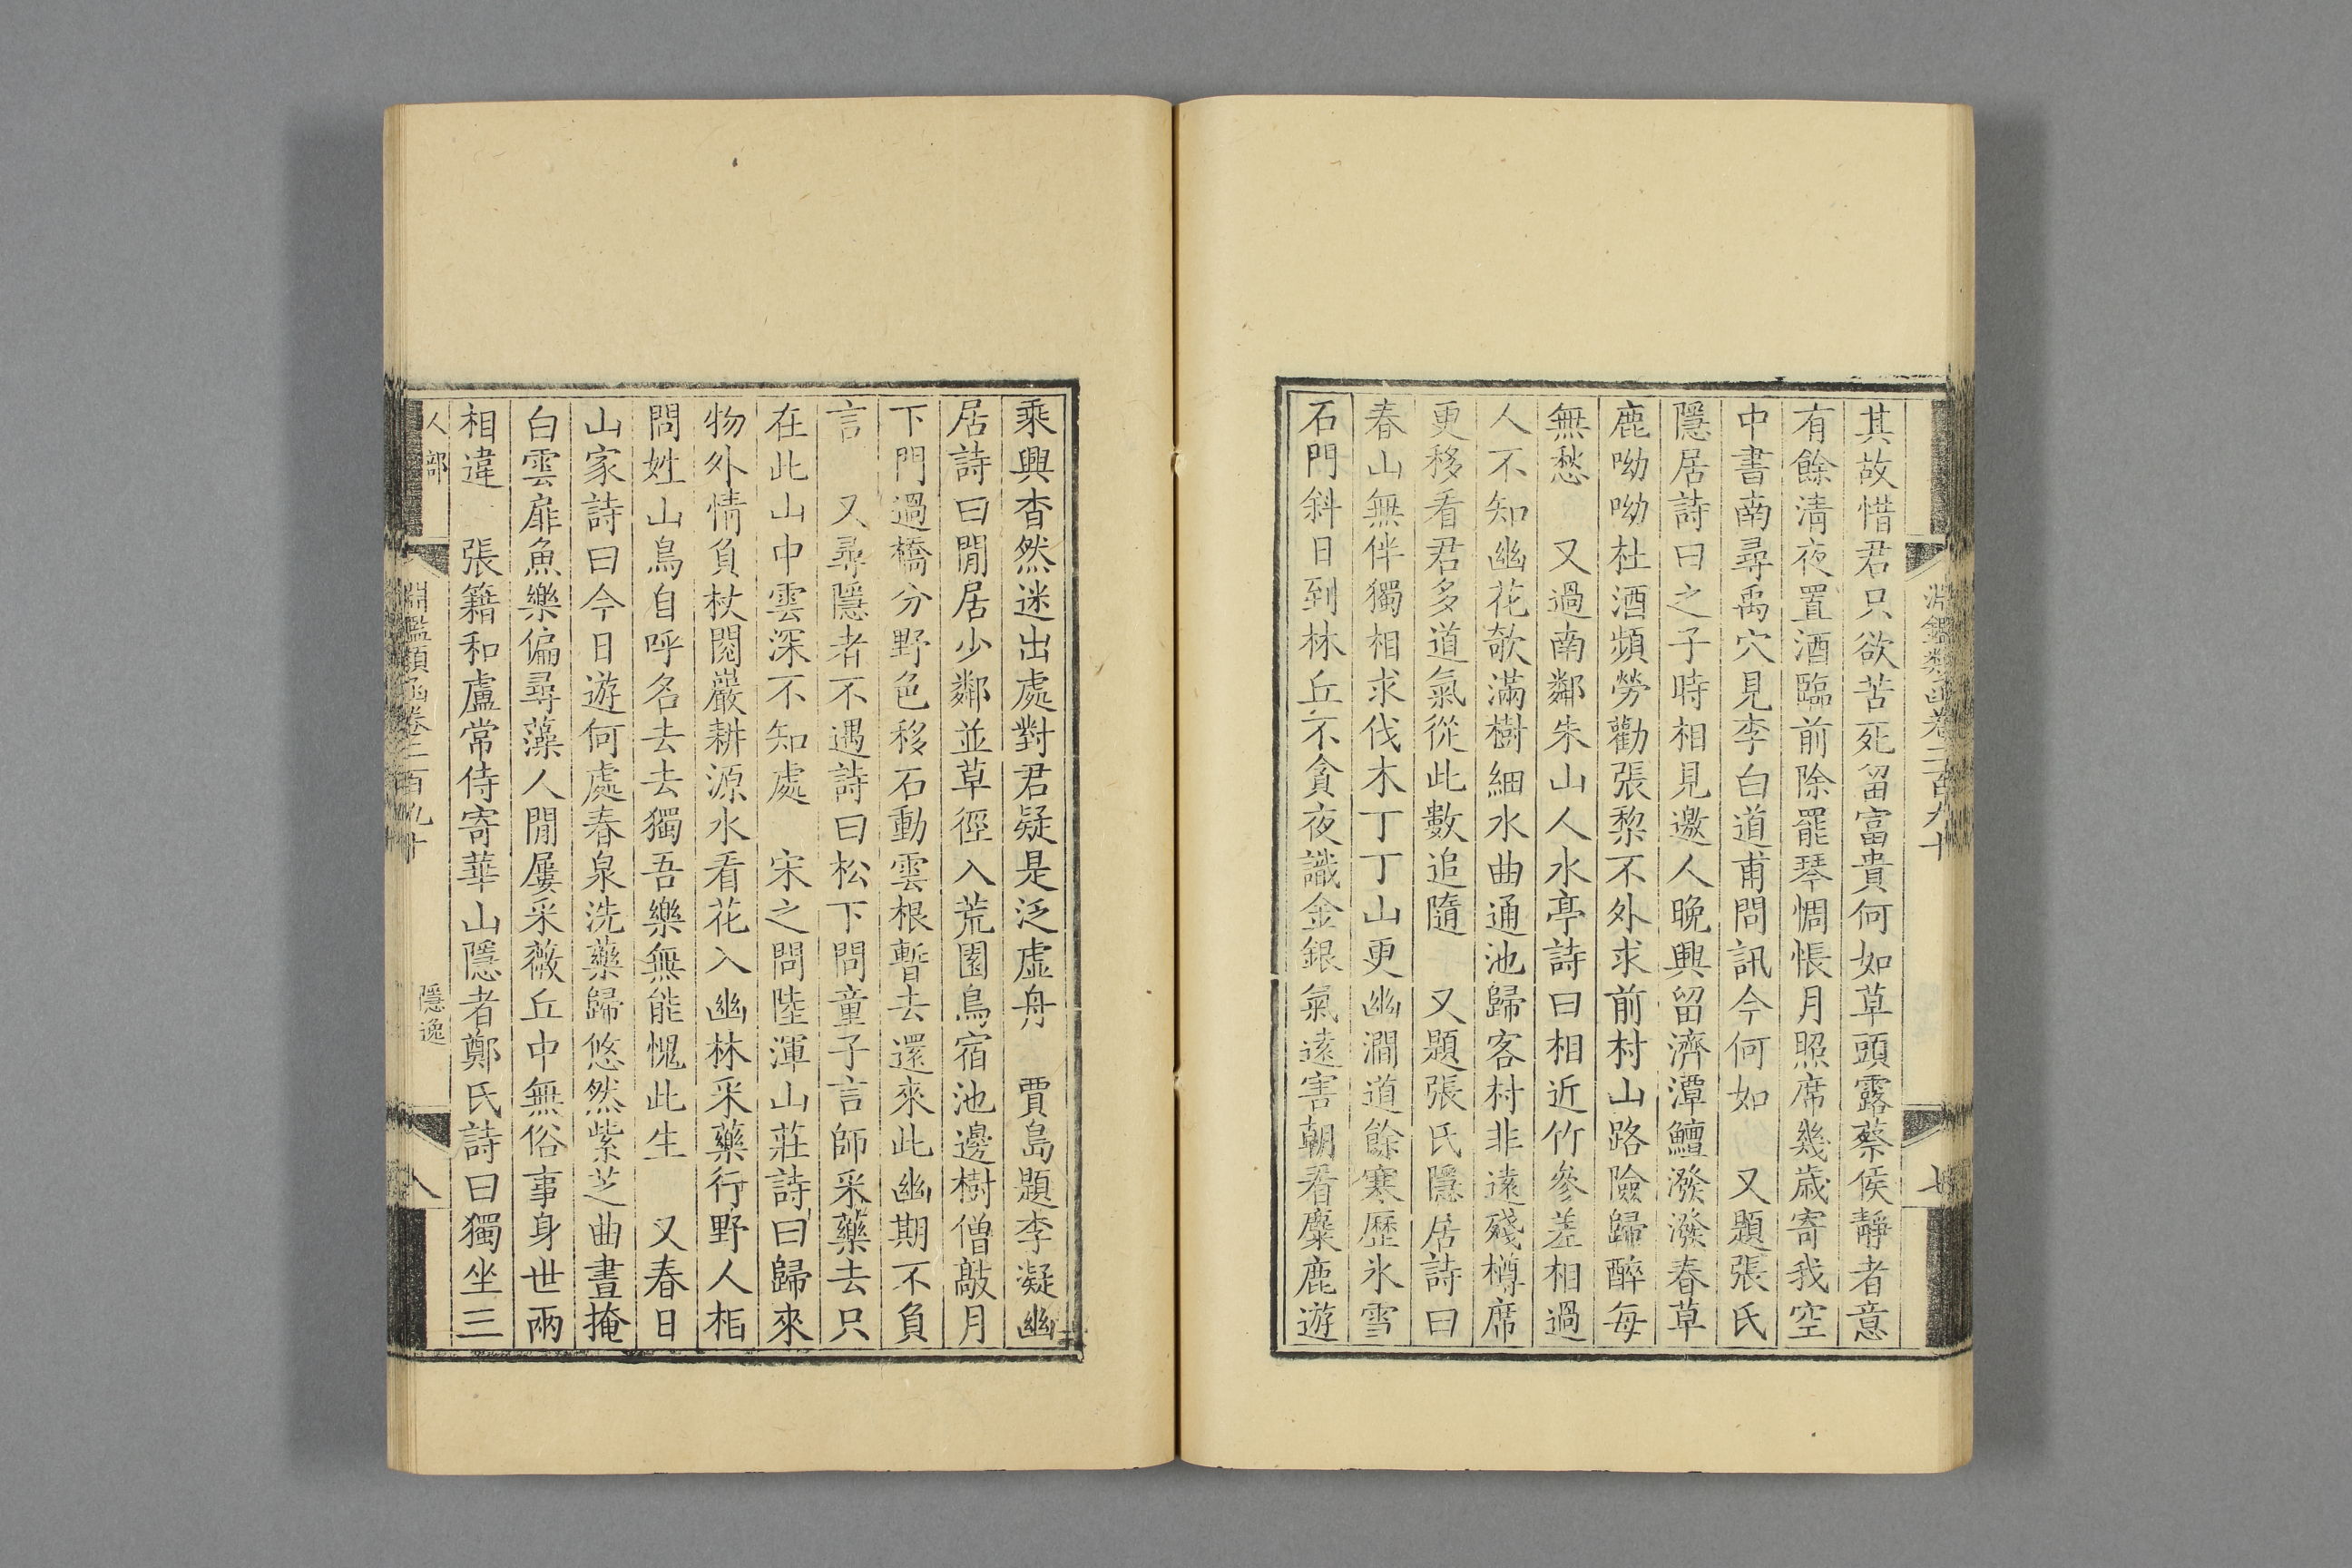 淵鑑類函卷二百九十
七
其故惜君只欲苦死留富貴何如草頭露蔡侯靜者意
有餘清夜置酒臨前除罷琴惆悵月照席幾歲寄我空
中書南尋禹穴見李白道甫問訊今何如　又題張氏
隱居詩曰之子時相見邀人晚興留濟潭鱣潑潑春草
鹿呦呦杜酒頻勞勸張梨不外求前村山路險歸醉每
無愁　又過南鄰朱山人水亭詩曰相近竹參差相過
人不知幽花欹滿樹細水曲通池歸客村非遠殘樽席
更移看君多道氣從此數追隨　又題張氏隱居詩曰
春山無伴獨相求伐木丁丁山更幽澗道餘寒歷氷雪
石門斜日到林丘不貪夜識金銀氣遠害朝看麋鹿遊
乘興杳然迷出處對君疑是泛虛舟　賈島題李凝幽
居詩曰閒居少鄰並草徑入荒園鳥宿池邊樹僧敲月
下門過橋分野色移石動雲根暫去還來此幽期不負
言　又尋隱者不遇詩曰松下問童子言師采藥去只
在此山中雲深不知處　宋之問陸渾山莊詩曰歸來
物外情負杖閱巖耕源水看花入幽林采藥行野人相
問姓山鳥自呼名去去獨吾樂無能愧此生　又春日
山家詩曰今日遊何處春泉洗藥歸悠然紫芝曲晝掩
白雲扉魚樂偏尋藻人閒屢采薇丘中無俗事身世兩
相違　張籍和盧常侍寄華山隱者鄭氏詩曰獨坐三
人部
淵鑑類函卷二百九十
隱逸
八